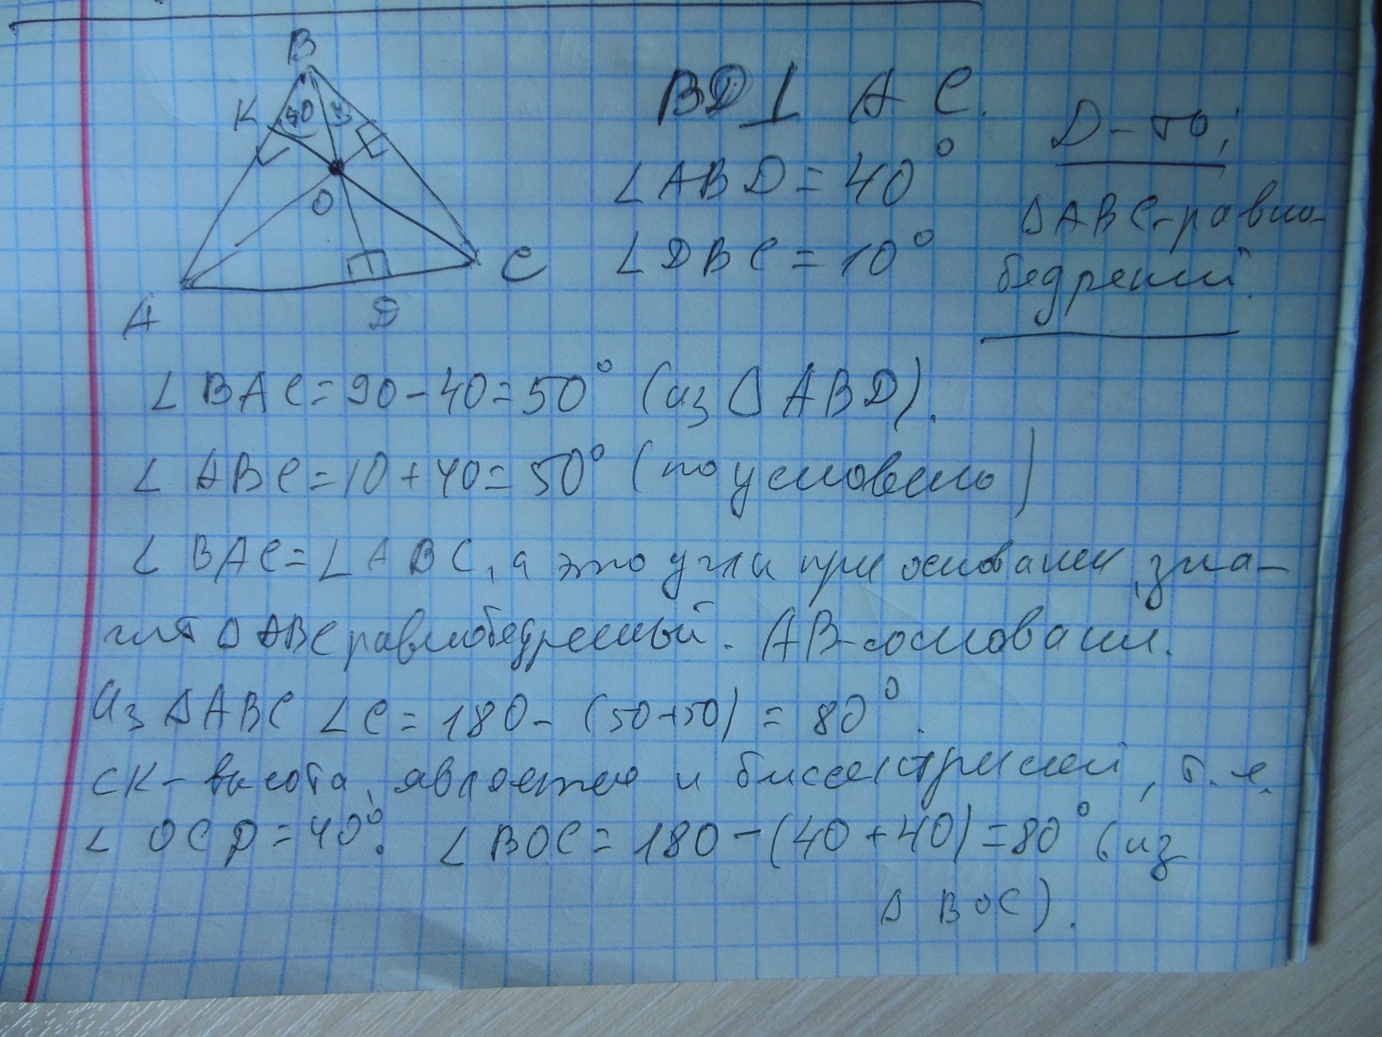 B
K
40
O
C
A
D
BD ⊥ AC.
∠ABD = 40°
∠DBC = 10°
Д-ть:
ΔABC-равно-
бедренный.
∠ BAC = 90 - 40 = 50° (из Δ ABD).
∠ ABC = 10 + 40 = 50° (по условию)
∠ BAC = ∠ABC, а это углы при основании, зна-
чит Δ ABC равнобедренный. AB-основание.
Из ΔABC ∠C = 180 - (50+50) = 80°.
CK - высота, является и биссектрисой, т.е.
∠ OCD = 40°. ∠ BOC = 180 - (40+40) = 80° (из
Δ BOC).